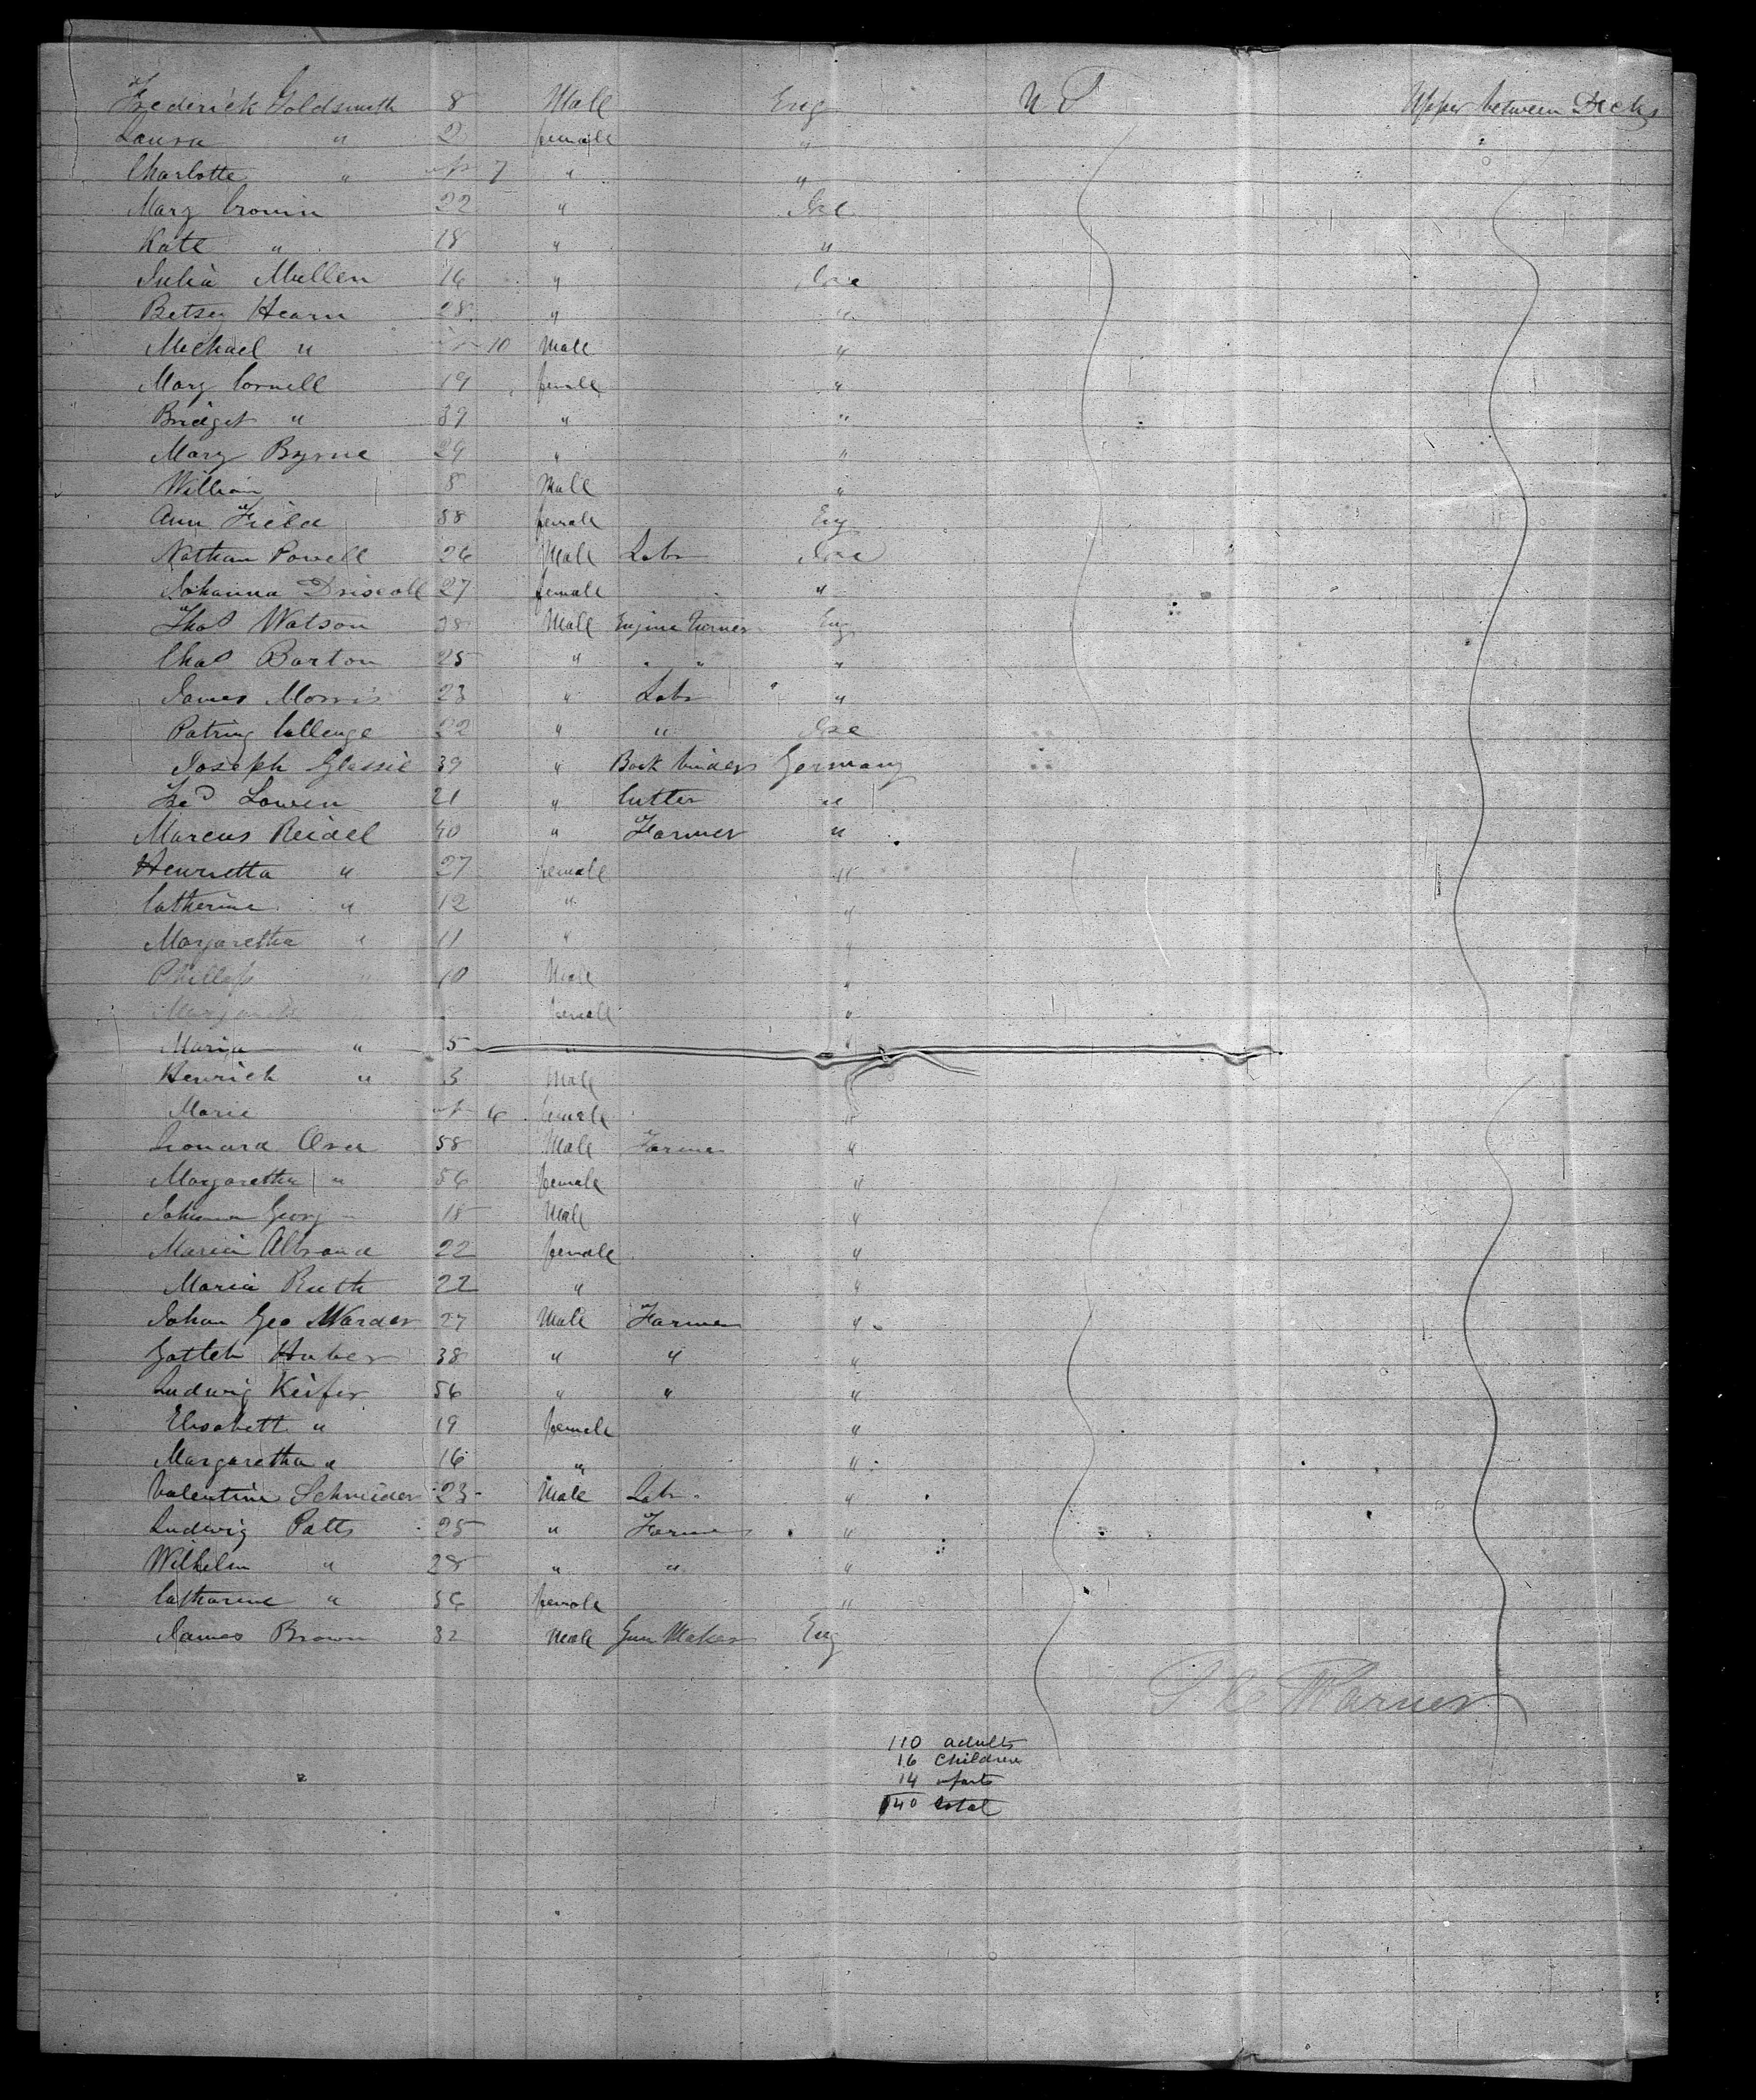 Frederick Goldsmith 8 Male Eng U S Upper between Decks
Laura " 2 female "
Charlotte " inf 7 " "
Mary Cronin 22 " Ire
Kate " 18 " "
Julia Mullen 16 " Ire
Betsey Hearn 28 " "
Michael " 10 Male "
Mary Connell 19 female "
Bridget " 39 " "
Mary Byrne 29 " "
William 8 Male "
Ann Field 58 female Eng
Nathan Powell 26 Male Labr Ire
Johanna Driscoll 27 female "
Thos Watson 38 Male Engine Turner Eng
Chas Barton 25 " " " "
James Morris 23 " Labr "
22 " " Ire
Joseph Glassie 39 " Book binder Germany
Fred Lowen 21 " Cutter "
Marcus Reidel 40 " Farmer "
Henrietta " 27 female "
Catherine " 12 " "
Margaretha " 11 " "
Phillip " 10 Male "
female "
Maria " 5 " "
Henrich " 3 Male "
Marie inf 4 female "
58 Male Farmer "
Margaretha " 56 female "
Johann Georg 18 Male "
Maria 22 female "
Maria Ruth 22 " "
Johan Geo Warder 27 Male Farmer "
Gotleb Huber 38 " " "
Ludwig Keifer 56 " " "
Elisabett " 19 female "
Margaretha " 16 " "
Valentine Schneider 23 Male Labr "
Ludwig Patts 25 " Farmer "
Wilhelm " 28 " " "
Catharine " 56 female "
James Brown 32 Male Gun Maker Eng
Warner
110 adults
16 Children
14 infants
140 total